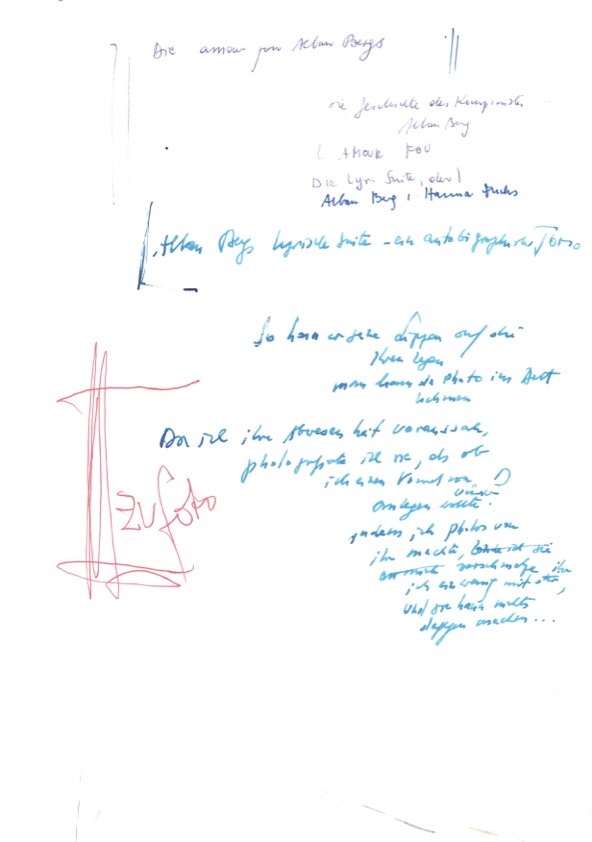 Die amour fou Alban Bergs
Die Geschichte des Komponisten
Alban Berg
L'AMOUR FOU
Die Lyr. Suite, der
Alban Berg, Hanna Fuchs
Alban Bergs Lyrische Suite – ein autobiographischer Torso
So kann er seine Lippen auf die
Ihren legen
man kann das Photo ins Bett
nehmen
Da ich ihre Abwesenheit voraussah,
photografierte ich sie, als ob
ich einen Vorrat von
anlegen wollte.
indem ich Photos von
ihr machte,
verschmolz
ich ein wenig mit ihr,
und sie kann nichts
dagegen machen...
ZU Foto